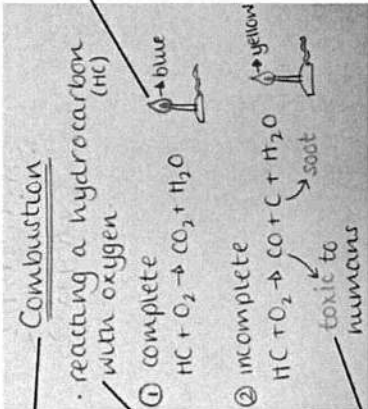 Combustion
· reacting a hydrocarbon
(HC)
with oxygen
① complete
HC + O₂ → CO₂ + H₂O
→ blue
② incomplete
HC + O₂ → CO + C + H₂O
→ yellow
soot
toxic to
humans